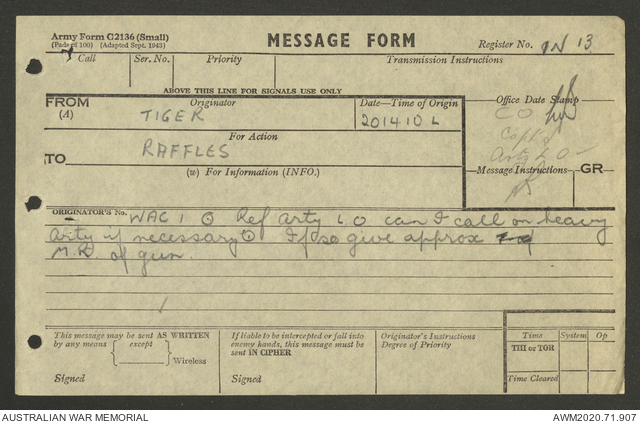 Army Form C2136 (Small)
(Pads of 100) (Adapted Sept. 1943)
MESSAGE FORM
Register No. IN 13
Call Ser. No. Priority Transmission Instructions
ABOVE THIS LINE FOR SIGNALS USE ONLY
FROM Originator Date—Time of Origin Office Date Stamp
(A) TIGER 201410 L CO
For Action Copy
TO RAFFLES Arty LO
(w) For Information (INFO.) Message Instructions GR
ORIGINATOR'S No. WAG 1 ⊙ Ref Arty LO can I call on heavy
Arty if necessary ⊙ If so give approx
M.R. of gun.
This message may be sent AS WRITTEN
by any means except
Wireless
Signed
If liable to be intercepted or fall into
enemy hands, this message must be
sent IN CIPHER
Signed
Originator's Instructions
Degree of Priority
Time System Op
THI or TOR
Time Cleared
AUSTRALIAN WAR MEMORIAL AWM2020.71.907